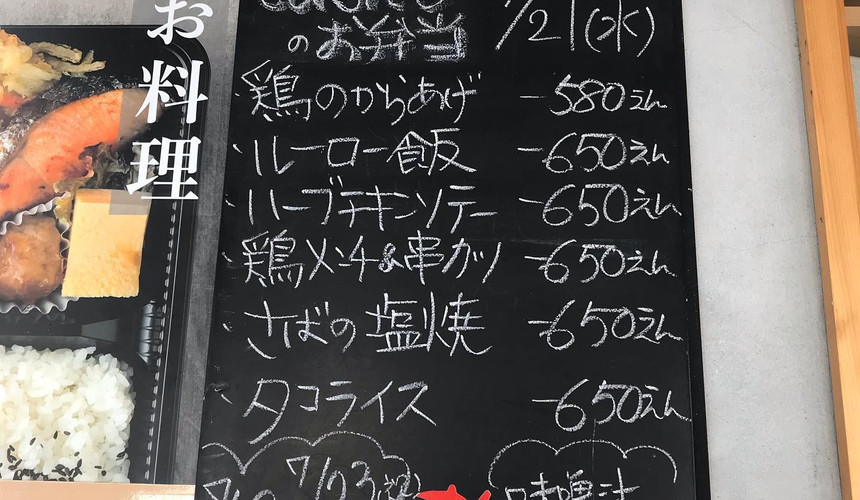 お料理
のお弁当
7/21(水)
・鶏のからあげ -580えん
・ルーロー飯 -650えん
・ハーブチキンソテー -650えん
・鶏メンチ&串カツ -650えん
・さばの塩焼 -650えん
・タコライス -650えん
7/23
味噌汁